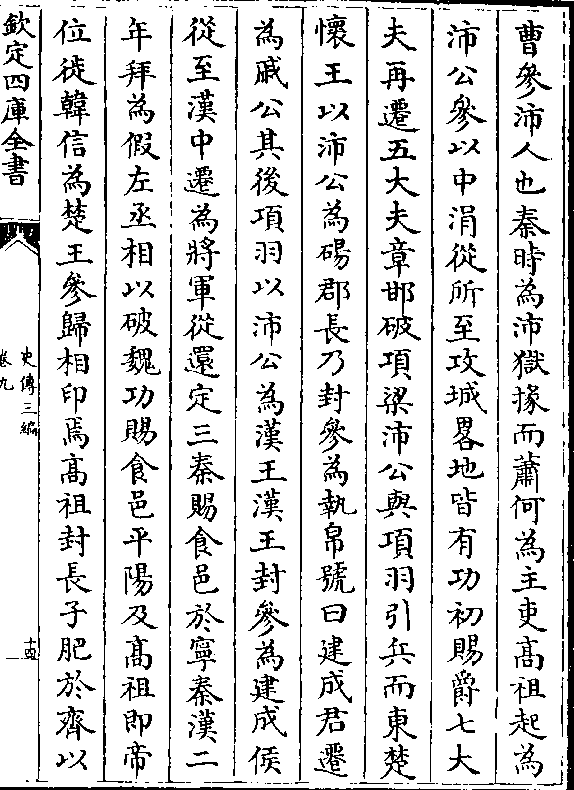 曹參沛人也秦時為沛獄掾而蕭何為主吏髙祖起為
沛公參以中涓從所至攻城畧地皆有功初賜爵七大
夫再遷五大夫章邯破項梁沛公與項羽引兵而東楚
懷王以沛公為碭郡長乃封參為執帛號曰建成君遷
為戚公其後項羽以沛公為漢王漢王封參為建成侯
從至漢中遷為將軍從還定三秦賜食邑於寧秦漢二
年拜為假左丞相以破魏功賜食邑平陽及髙祖即帝
位徙韓信為楚王參歸相印焉髙祖封長子肥於齊以
欽定四庫全書
史傳三編
卷九
十四